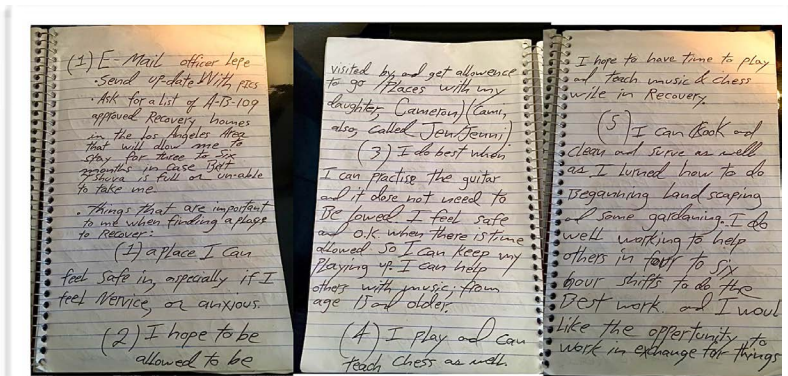 (1) E-Mail officer Lepe
• Send up-date With pics
• Ask for a list of A-B-109
approved Recovery homes
in the Los Angeles Area
that will allow me to
stay for three to Six
months in case Beit
T'shuva is full or un-able
to take me.
• Things that are important
to me when finding a place
to Recover:
(1) a place I can
feel safe in, especially if I
feel Nervice, or anxious.
(2) I hope to be
allowed to be
visited by and get allowence
to go places with my
daughter, Cameron/(Cami,
also, called Jen/Jenni)
(3) I do best when
I can practise the guitar
and it dose not need to
Be lowed I feel safe
and o.k when there is time
allowed so I can keep my
Playing up. I can help
others with music; from
age 15 and older.
(4) I play and can
teach Chess as well
I hope to have time to play
and teach music & chess
wile in Recovery.
(5) I can Kook and
clean and surve as well
as I lurned how to do
Beganning Landscaping
and some gardaning. I do
well working to help
others in four to six
hour shifts to do the
Best work. and I woul
Like the oppertunity to
work in exchange for things